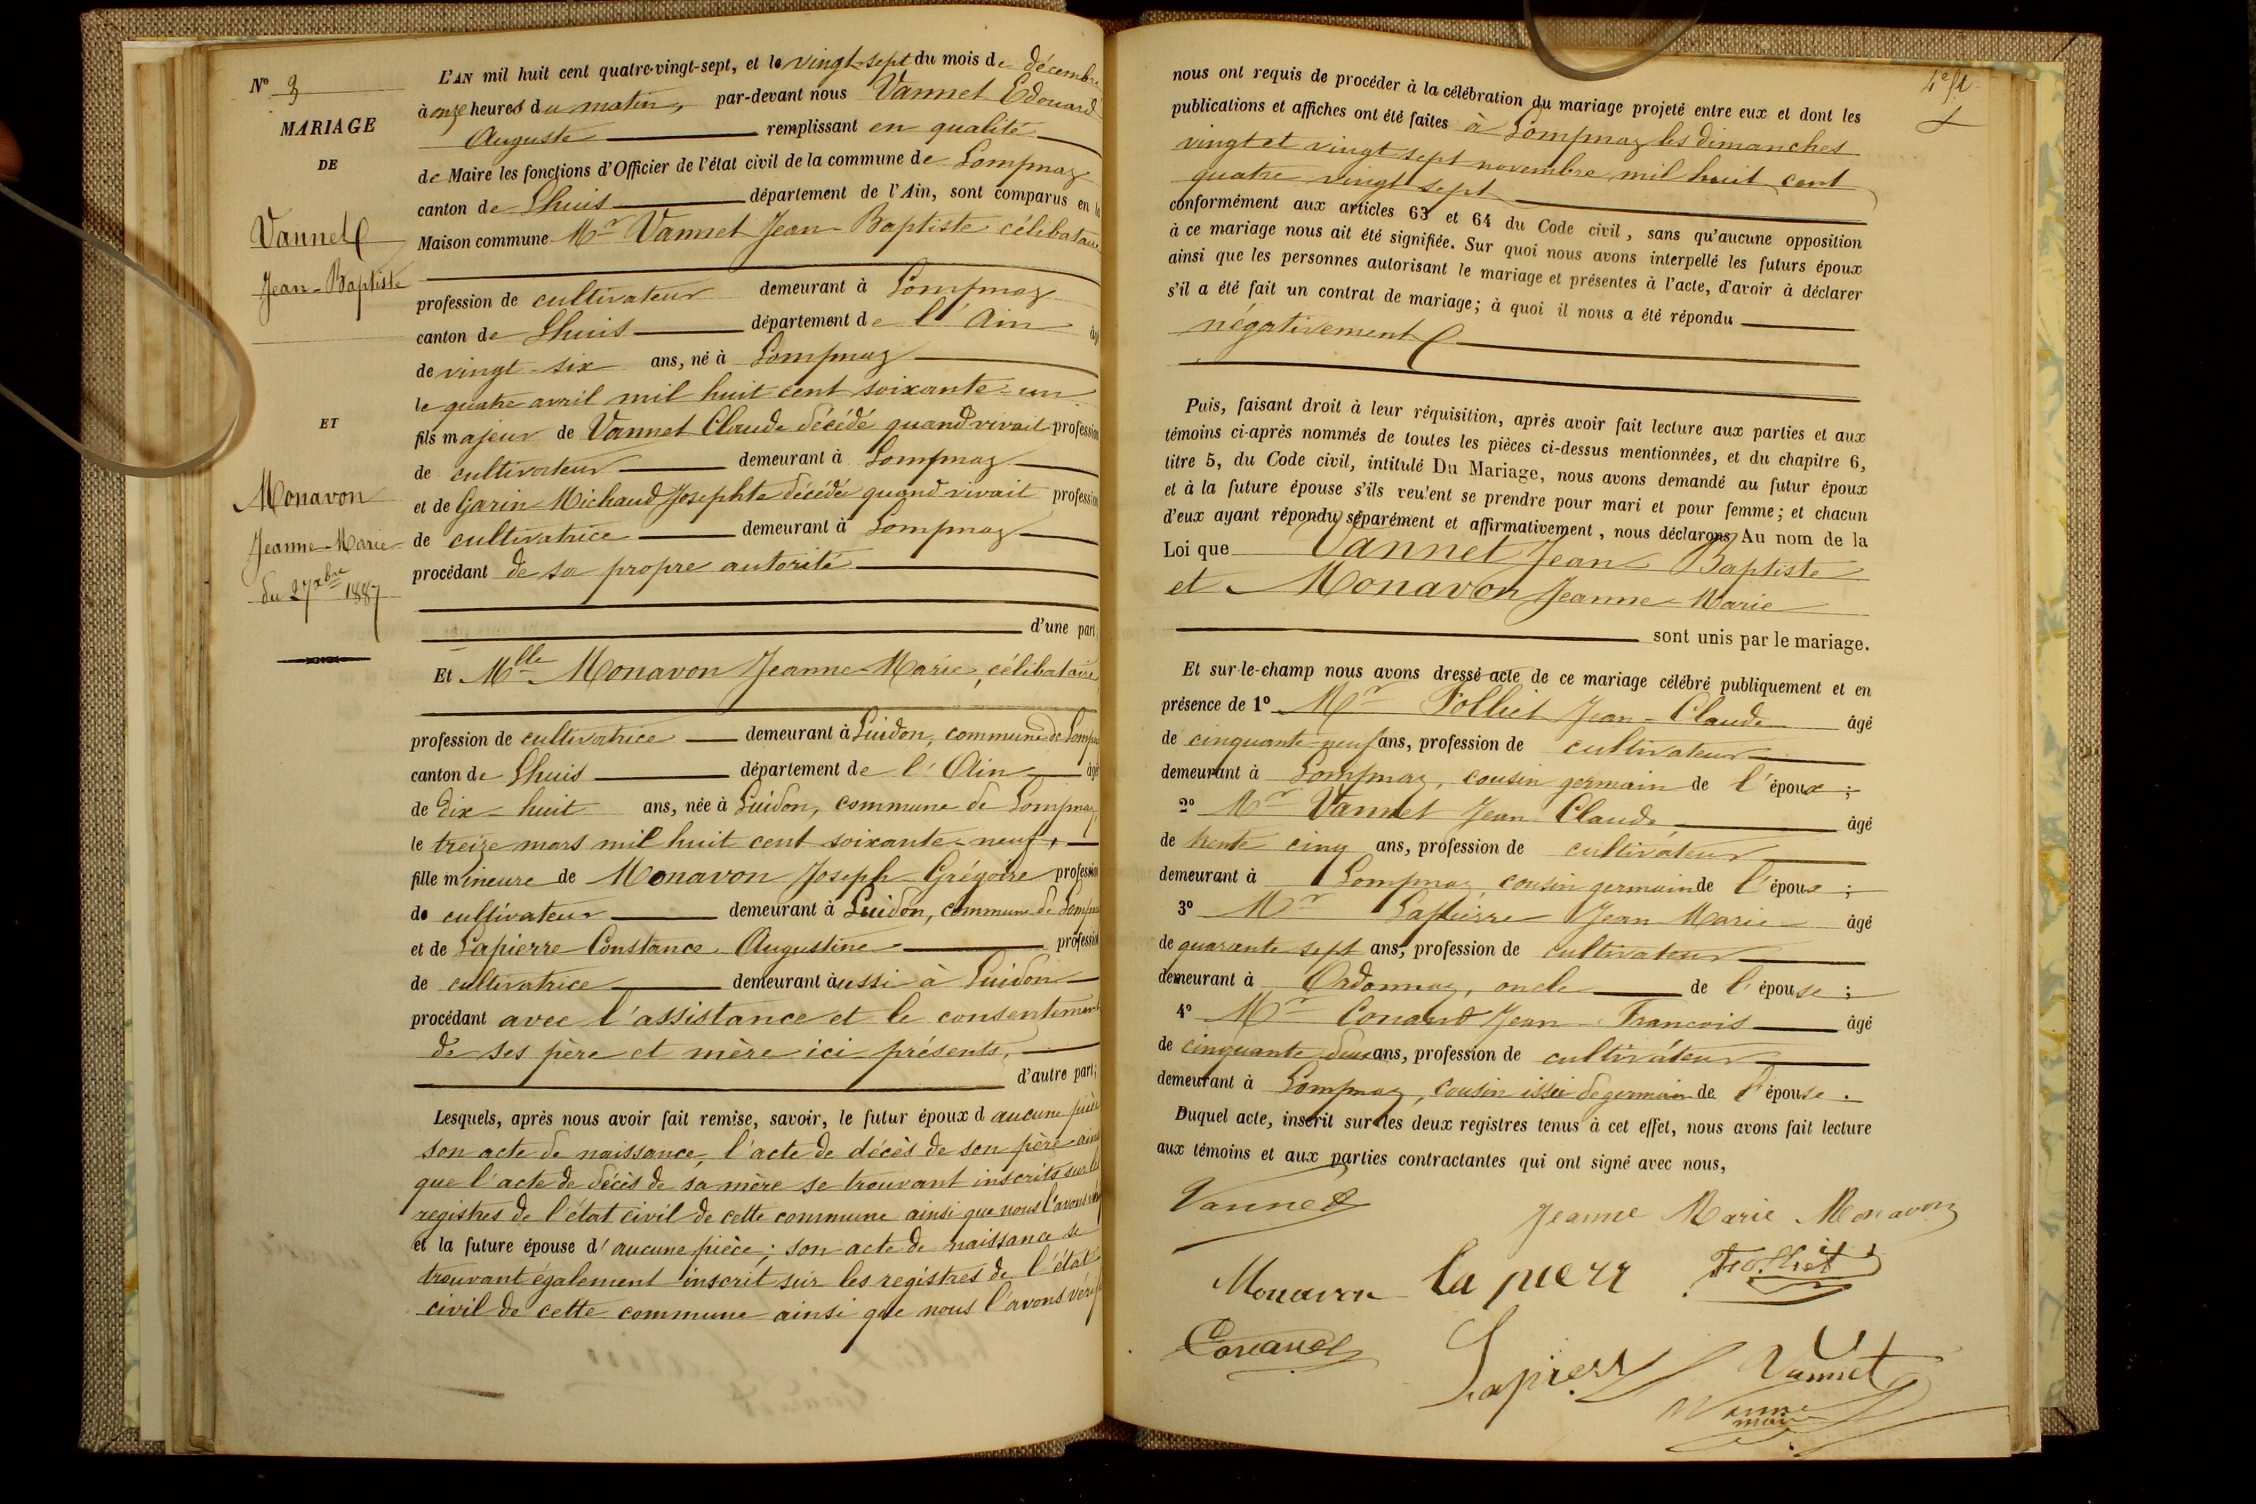 N° 3
MARIAGE
DE
Vannet
Jean-Baptiste
ET
Monavon
Jeanne-Marie
du 27 xbre 1887
L'AN mil huit cent quatre-vingt-sept, et le vingt-sept du mois de décembre
à onze heures du matin, par-devant nous Vannet Edouard
Auguste remplissant en qualité
de Maire les fonctions d'Officier de l'état civil de la commune de Lompnaz
canton de Lhuis département de l'Ain, sont comparus en la
Maison commune Mr Vannet Jean-Baptiste célibataire
profession de cultivateur demeurant à Lompnaz
canton de Lhuis département de l'Ain âgé
de vingt-six ans, né à Lompnaz
le quatre avril mil huit cent soixante-un
fils majeur de Vannet Claude décédé quand vivait profession
de cultivateur demeurant à Lompnaz
et de Garin Michaud Josephte décédée quand vivait profession
de cultivatrice demeurant à Lompnaz
procédant de sa propre autorité
d'une part,
Et Mlle Monavon Jeanne-Marie, célibataire
profession de cultivatrice demeurant à Luidon, commune de Lompnaz
canton de Lhuis département de l'Ain âgé
de dix-huit ans, née à Luidon, commune de Lompnaz,
le treize mars mil huit cent soixante-neuf,
fille mineure de Monavon Joseph Grégoire profession
de cultivateur demeurant à Luidon, commune de Lompnaz
et de Lapierre Constance Augustine profession
de cultivatrice demeurant aussi à Luidon
procédant avec l'assistance et le consentement
de ses père et mère ici présents,
d'autre part;
Lesquels, après nous avoir fait remise, savoir, le futur époux d'aucune pièce
son acte de naissance, l'acte de décès de son père ainsi
que l'acte de décès de sa mère se trouvant inscrits sur les
registres de l'état civil de cette commune ainsi que nous l'avons
et la future épouse d'aucune pièce; son acte de naissance se
trouvant également inscrit sur les registres de l'état
civil de cette commune ainsi que nous l'avons vérifié
nous ont requis de procéder à la célébration du mariage projeté entre eux et dont les
publications et affiches ont été faites à Lompnaz les dimanches
vingt et vingt sept novembre mil huit cent
quatre vingt sept
conformément aux articles 63 et 64 du Code civil, sans qu'aucune opposition
à ce mariage nous ait été signifiée. Sur quoi nous avons interpellé les futurs époux
ainsi que les personnes autorisant le mariage et présentes à l'acte, d'avoir à déclarer
s'il a été fait un contrat de mariage; à quoi il nous a été répondu
négativement
Puis, faisant droit à leur réquisition, après avoir fait lecture aux parties et aux
témoins ci-après nommés de toutes les pièces ci-dessus mentionnées, et du chapitre 6,
titre 5, du Code civil, intitulé Du Mariage, nous avons demandé au futur époux
et à la future épouse s'ils veulent se prendre pour mari et pour femme; et chacun
d'eux ayant répondu séparément et affirmativement, nous déclarons Au nom de la
Loi que Vannet Jean Baptiste
et Monavon Jeanne-Marie
sont unis par le mariage.
Et sur-le-champ nous avons dressé acte de ce mariage célébré publiquement et en
présence de 1° Mr Folliet Jean-Claude âgé
de cinquante-neuf ans, profession de cultivateur
demeurant à Lompnaz, cousin germain de l'époux;
2° Mr Vannet Jean Claude, âgé
de trente cinq ans, profession de cultivateur
demeurant à Lompnaz cousin germain de l'époux;
3° Mr Lapierre Jean Marie âgé
de quarante sept ans, profession de cultivateur
demeurant à Ordonnaz, oncle de l'épouse;
4° Mr Conand Jean-François âgé
de cinquante deux ans, profession de cultivateur
demeurant à Lompnaz, cousin issu de germain de l'épouse.
Duquel acte, inscrit sur les deux registres tenus à cet effet, nous avons fait lecture
aux témoins et aux parties contractantes qui ont signé avec nous,
Vannet
Jeanne Marie Monavon
Monavon La pierr Folliet
Conand
Lapierr Vannet
Vanne
maire